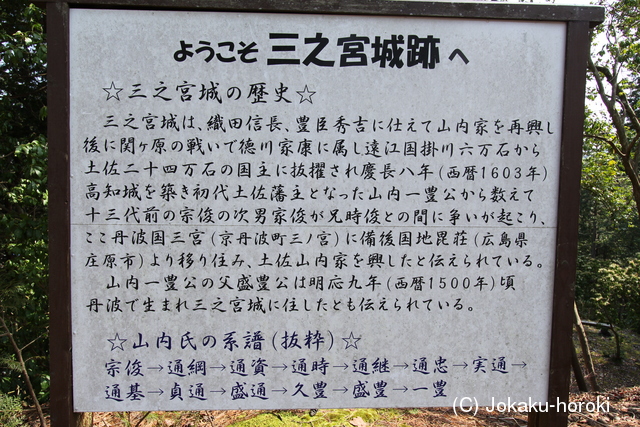 ようこそ 三之宮城跡 へ
☆三之宮城の歴史☆
三之宮城は、織田信長、豊臣秀吉に仕えて山内家を再興し
後に関ヶ原の戦いで徳川家康に属し遠江国掛川六万石から
土佐二十四万石の国主に抜擢され慶長八年(西暦1603年)
高知城を築き初代土佐藩主となった山内一豊公から数えて
十三代前の宗俊の次男家俊が兄時俊との間に争いが起こり、
ここ丹波国三宮(京丹波町三ノ宮)に備後国地毘荘(広島県
庄原市)より移り住み、土佐山内家を興したと伝えられている。
山内一豊公の父盛豊公は明応九年(西暦1500年)頃
丹波で生まれ三之宮城に住したとも伝えられている。
☆山内氏の系譜(抜粋)☆
宗俊→通綱→通資→通時→通継→通忠→実通→
通基→貞通→盛通→久豊→盛豊→一豊
(C) Jokaku-horoki